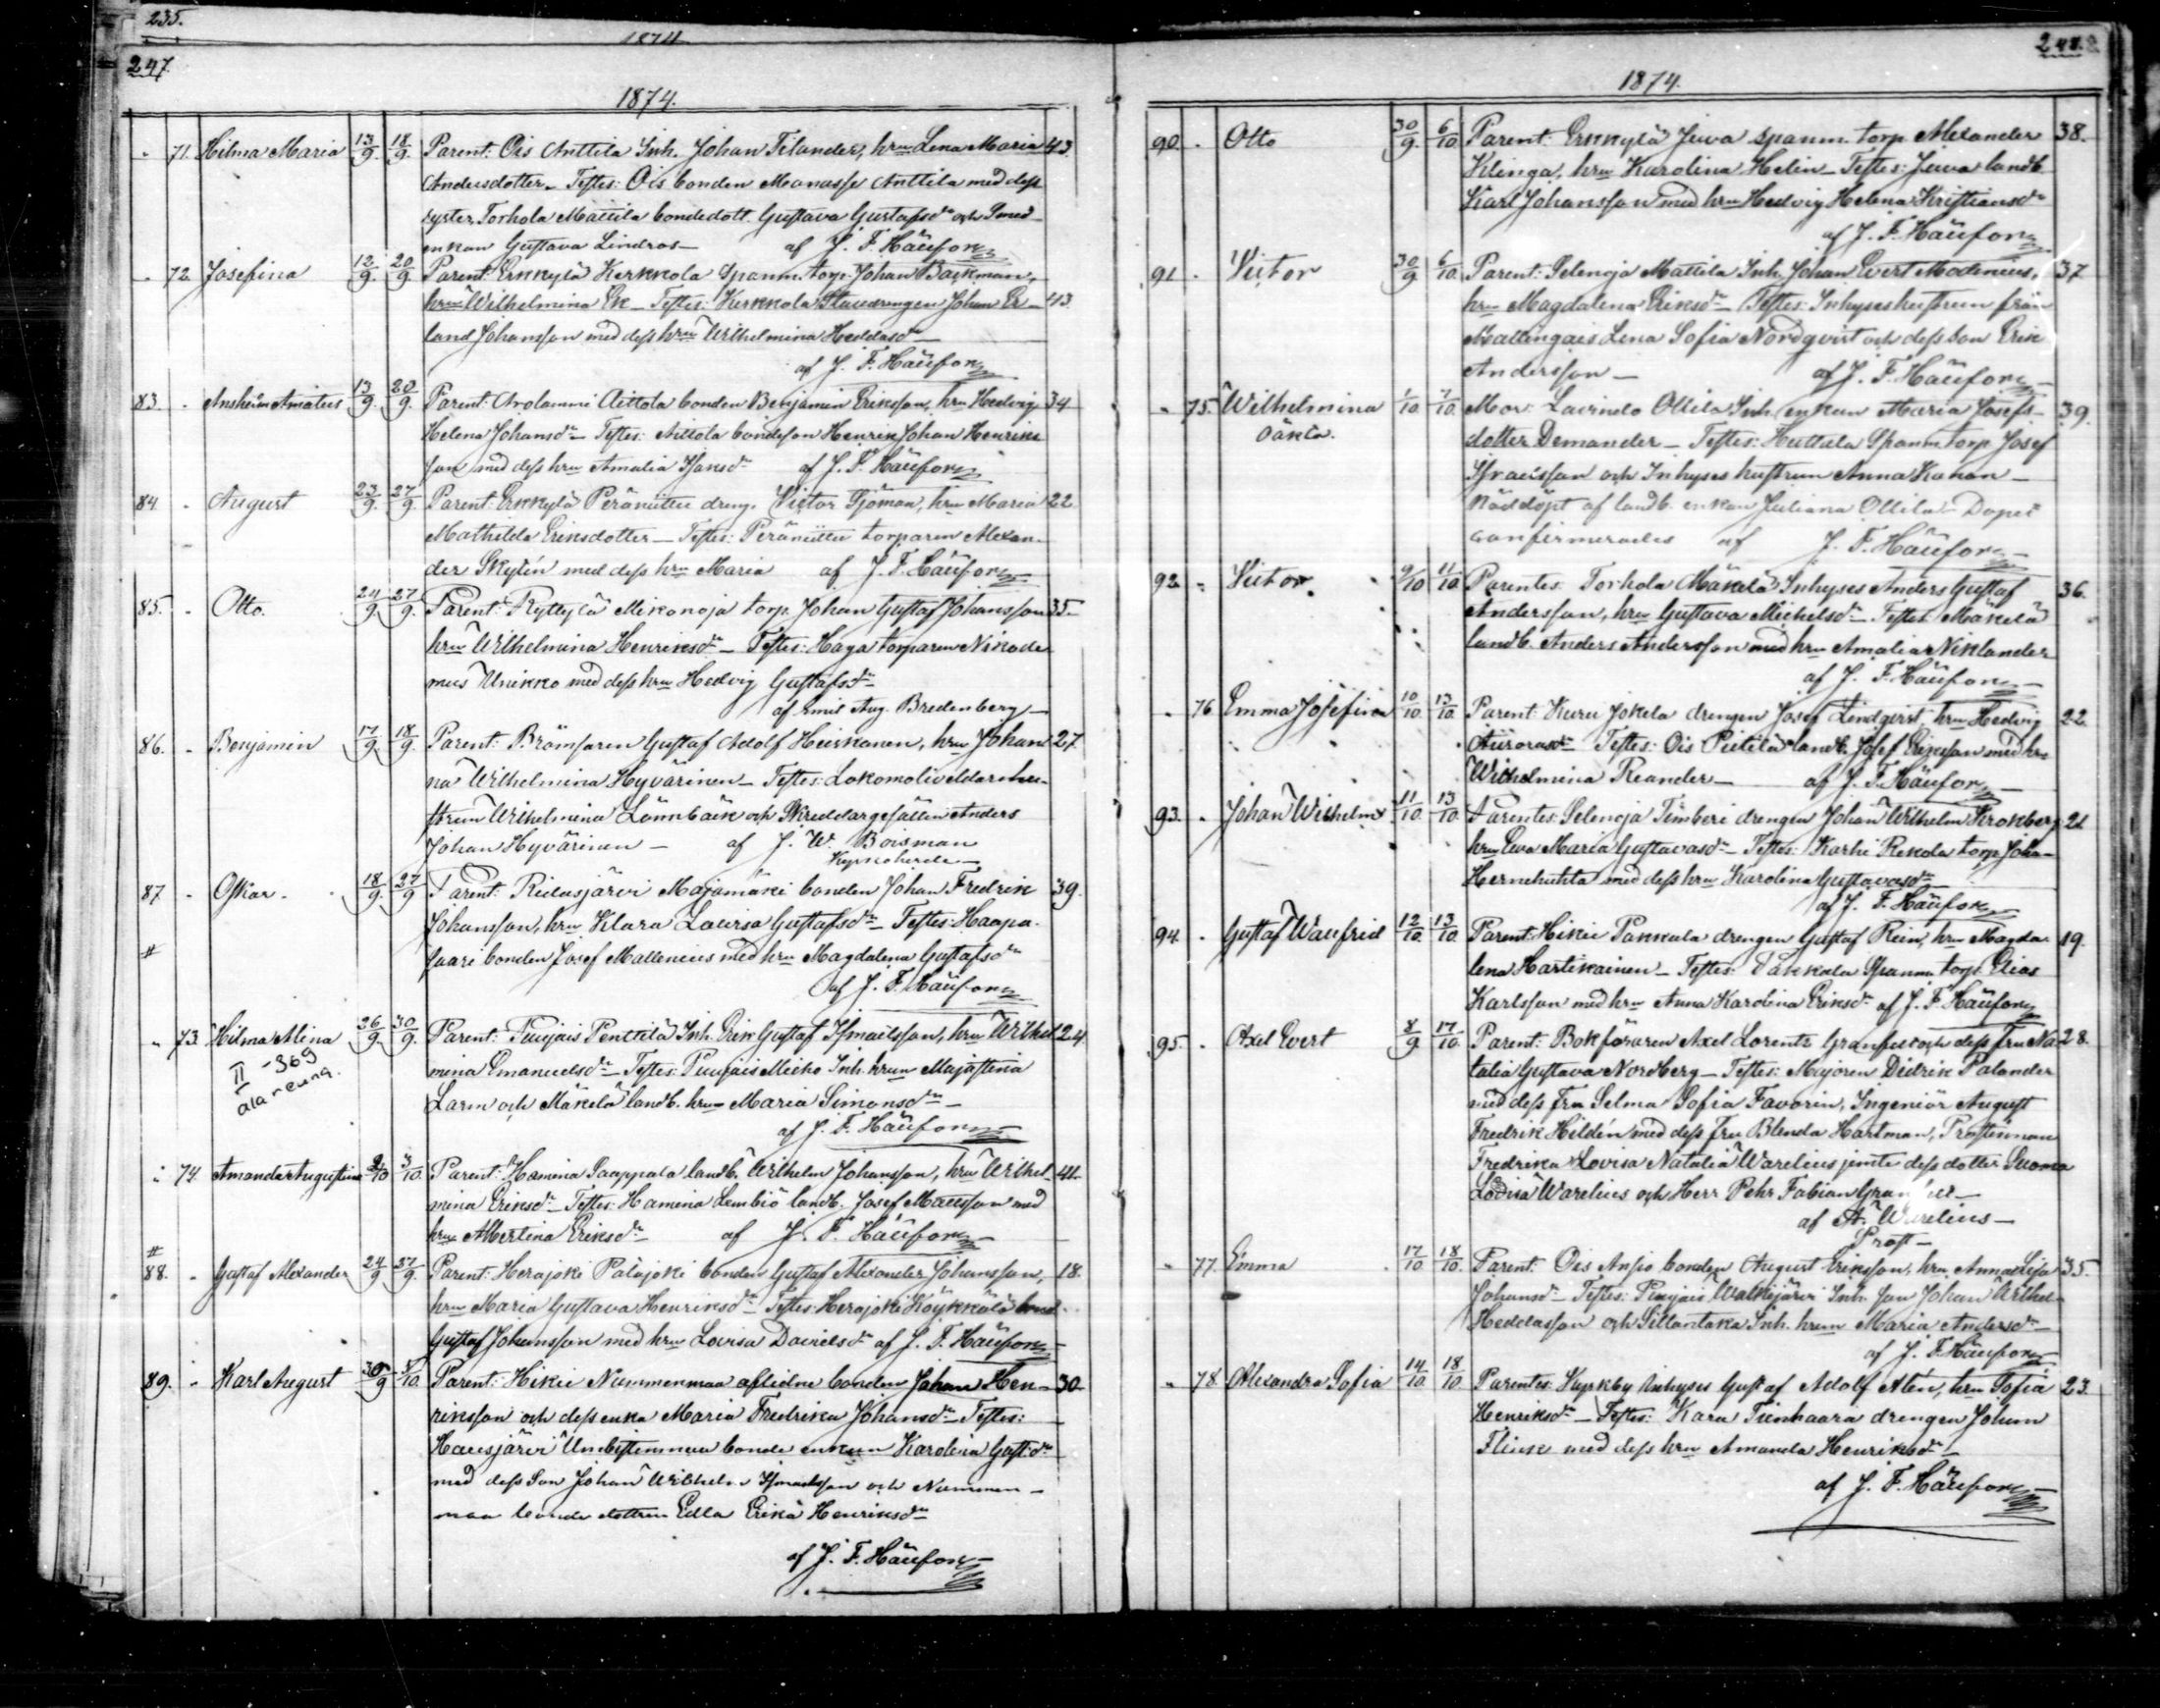 235.
1874
247.
1874.
71. Hilma Maria 13/9. 18/9. Parent: Ois Anttila Inh. Johan Tilander, hru Lena Maria 43.
Andersdotter. Testes: Ois bonden Manasse Anttila med dess
syster, Torhola Mattila bondedott. Gustava Gustafsdr och Smed-
enkan Gustava Lindros — af J. F. Häüfor
72. Josefina 12/9. 20/9. Parent: Erkkylä Kerkkola Spanm. torp. Johan Backman,
hru Wilhelmina Ek — Testes: Kerkkola Staudrengen Johan Er- 43.
land Johansson med dess hru Wilhelmina Heddasdr —
af J. F. Häüfor
83. Anshelm Amatus 13/9. 20/9. Parent: Arolammi Aittola bonden Benjamin Eriksson, hru Hedvig 34
Helena Johansdr — Testes: Aittola bondeson Henrik Johan Henriks
son med dess hru Amalia Isaksdr af J. F. Häüfor
84 August 23/9. 27/9. Parent: Erkkylä Peräniittu dreng. Victor Sjöman, hru Maria 22.
Mathilda Eriksdotter — Testes: Peräniittu torparen Alexan-
der Skytén med dess hru Maria af J. F. Häüfor
85. Otto. 24/9. 27/9. Parent: Ryttylä Mikonoja torp. Johan Gustaf Johansson 35.
hru Wilhelmina Henriksdr — Testes: Haga torparen Nikode
mus Unikko med dess hru Hedvig Gustafsdr
af Emil Aug. Bredenberg —
86. Benjamin 17/9. 18/9. Parent: Brömsaren Gustaf Adolf Heiskanen, hru Johan 27.
na Wilhelmina Hyvärinen — Testes: Lokomotiveldarehu-
strun Wilhelmina Lönnbäck och Skreddargesällen Anders
Johan Hyvärinen — af J. W. Boisman
Kyrkoherde —
87 Oskar. 18/9. 27/9 Parent: Ridasjärvi Majamäki bonden Johan Fredrik 39.
Johansson, hru Klara Lovisa Gustafsdr — Testes: Haapa-
# saari bonden Josef Mallenius med hru Magdalena Gustafsdr
af J. F. Häüfor
73. Hilma Alina 26/9. 30/9. Parent: Puujais Penttilä Inh. Erik Gustaf Ismaelsson, hru Wilhel 24
II - 369
alareuna.
mina Emanuelsdr — Testes: Puujais Micko Inh. hrun Majastina
Larm och Mäkelä landb. hrun Maria Simonsdr —
af J. F. Häüfor
74. Amanda Augustina 2/10 3/10. Parent: Hamina Saappala landb. Wilhelm Johansson, hru Wilhel- 41.
mina Eriksdr — Testes: Hamina Lembiö landb. Josef Mattsson med
hru Albertina Eriksdr af J. F. Häüfor
#
88. Gustaf Alexander 24/9 27/9. Parent: Herajoki Palajoki bonden Gustaf Alexander Johansson, 18.
hru Maria Gustava Henriksdr — Testes: Herajoki Köykkälä bond
Gustaf Johansson med hru Lovisa Davidsdr af J. F. Häüfor
89. Karl August 30/9 /10. Parent: Hikie Nummenmaa aflidne bonden Johan Hen- 30
riksson och dess enka Maria Fredrika Johansdr — Testes:
Hausjärvi Umbistenmaa bonde enkan Karolina Gust.dr
med dess Son Johan Wilhelm Ismaelsson och Nummen-
maa bonde dottren Edla Erika Henriksdr
af J. F. Häüfor
248.
1874.
90. Otto 30/9. 6/10. Parent: Erkkylä Juva Spanm. torp. Alexander 38.
Klinga, hru Karolina Helin — Testes: Juva landb.
Karl Johansson med hru Hedvig Helena Kristiansdr
af J. F. Häüfor
91. Victor 30/9 6/10. Parent: Selenoja Mattila Inh. Johan Evert Modenius, 37
hru Magdalena Eriksdr — Testes: Inhyseshustrun från
Mallengais Lena Sofia Nordqvist och dess son Erik
Andersson — af J. F. Häüfor
75. Wilhelmina 1/10. 7/10. Mor: Lavindo Ollila Inh. enkan Maria Josefs- 39.
oäkta.
dotter Demander — Testes: Huttula Spanm. torp. Josef
Israelsson och Inhyses hustrun Anna Kahan —
Nöddöpt af landb. enkan Juliana Ollila — Dopet
confirmerades af J. F. Häüfor
92. Victor. 9/10 11/10 Parentes: Torhola Mäkelä Inhyses Anders Gustaf 36.
Andersson, hru Gustava Michelsdr — Testes: Mäkelä
landb. Anders Andersson med hru Amalia Niklander
af J. F. Häüfor
76 Emma Josefina 10/10. 13/10. Parent: Kuru Jokela drengen Josef Lindqvist, hru Hedvig 22
Aurorasdr Testes: Ois Pietilä landb. Josef Eriksson med hru
Wilhelmina Reander — af J. F. Häüfor
93. Johan Wilhelm 11/10. 13/10. Parentes: Selenoja Timberi drengen Johan Wilhelm Kronberg 21.
hru Eva Maria Gustavasdr — Testes: Karhi Rekola torp. Joha-
Hernehuhta med dess hru Karolina Gustavasdr
af J. F. Häüfor
94. Gustaf Wanfrid 12/10. 13/10. Parent: Hikie Pakkala drengen Gustaf Rein, hru Magda- 19.
lena Hartikainen — Testes: Pakkala Spanm. torp. Elias
Karlsson med hru Anna Karolina Eriksdr af J. F. Häüfor
95. Axel Evert 8/9. 17/10. Parent: Bokföraren Axel Lorentz Granfelt och dess fru Na 28.
talia Gustava Nordberg — Testes: Majoren Didrik Palander
med dess fru Selma Sofia Favorin, Ingeniör August
Fredrik Hildén med dess fru Blenda Hartman, Prostinnan
Fredrika Lovisa Natalia Warelius jemte dess dotter Suoma
Lovisa Warelius och Herr Pehr Fabian Granfelt —
af A. Warelius —
Prost —
77. Emma 17/10 18/10. Parent: Ois Ansio bonden August Eriksson, hru Anna Lisa 35.
Johansdr — Testes: Puujais Walkijärvi Inh. son Johan Wilhel-
Heddasson och Sillantaka Inh. hrun Maria Andersdr —
af J. F. Häüfor
78 Alexandra Sofia 14/10. 18/10 Parentes: Kyrkby Inhyses Gustaf Adolf Alén, hru Sofia 23.
Henriksdr — Testes: Kara Tienhaara drengen Johan
Flink med dess hru Amanda Henriksdr —
af J. F. Häüfor